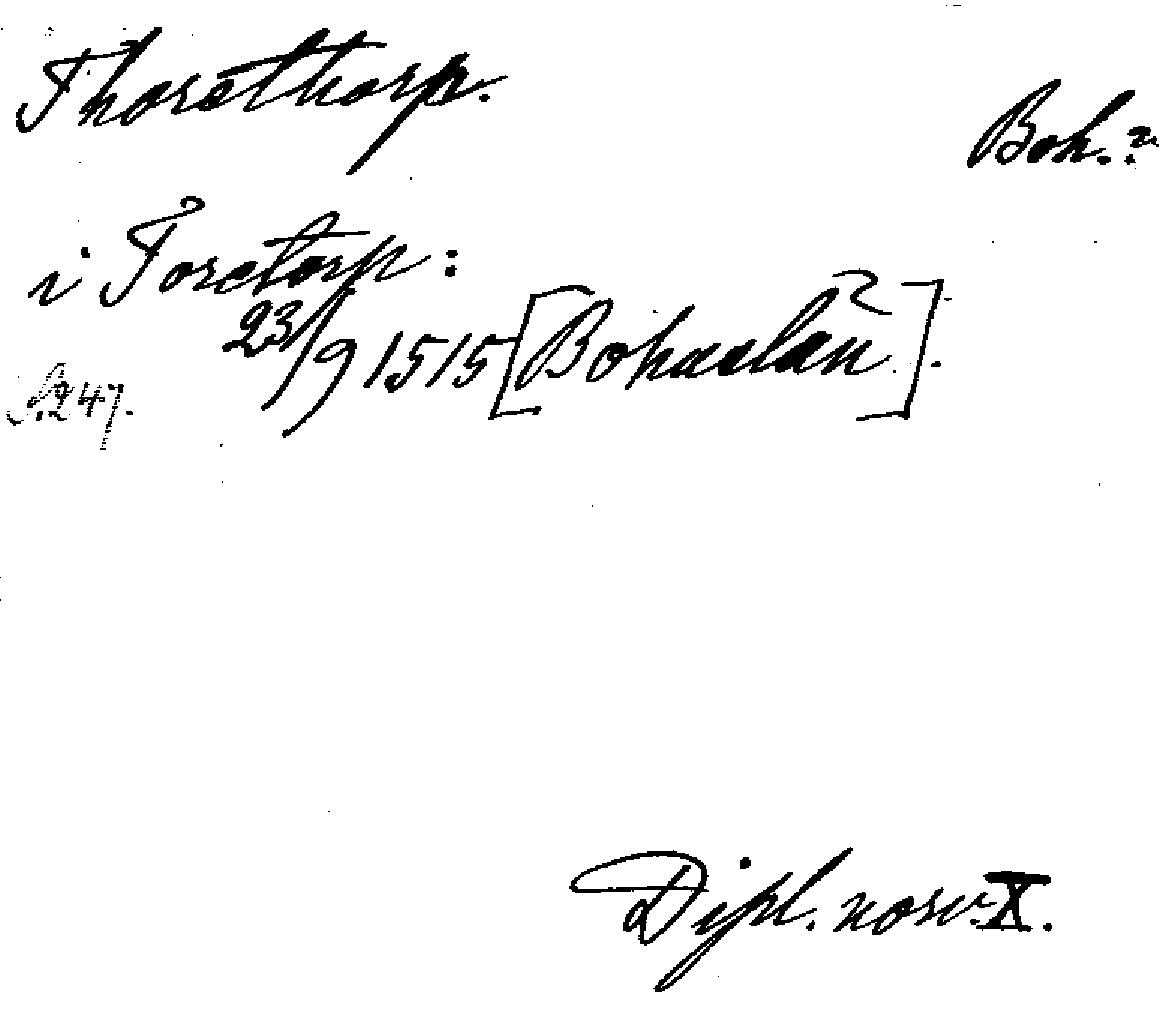 Thoretthorp.
Boh.?
i Toretorp:
23/9 1515 [Bohuslän?].
S. 247.
Dipl. norv. X.